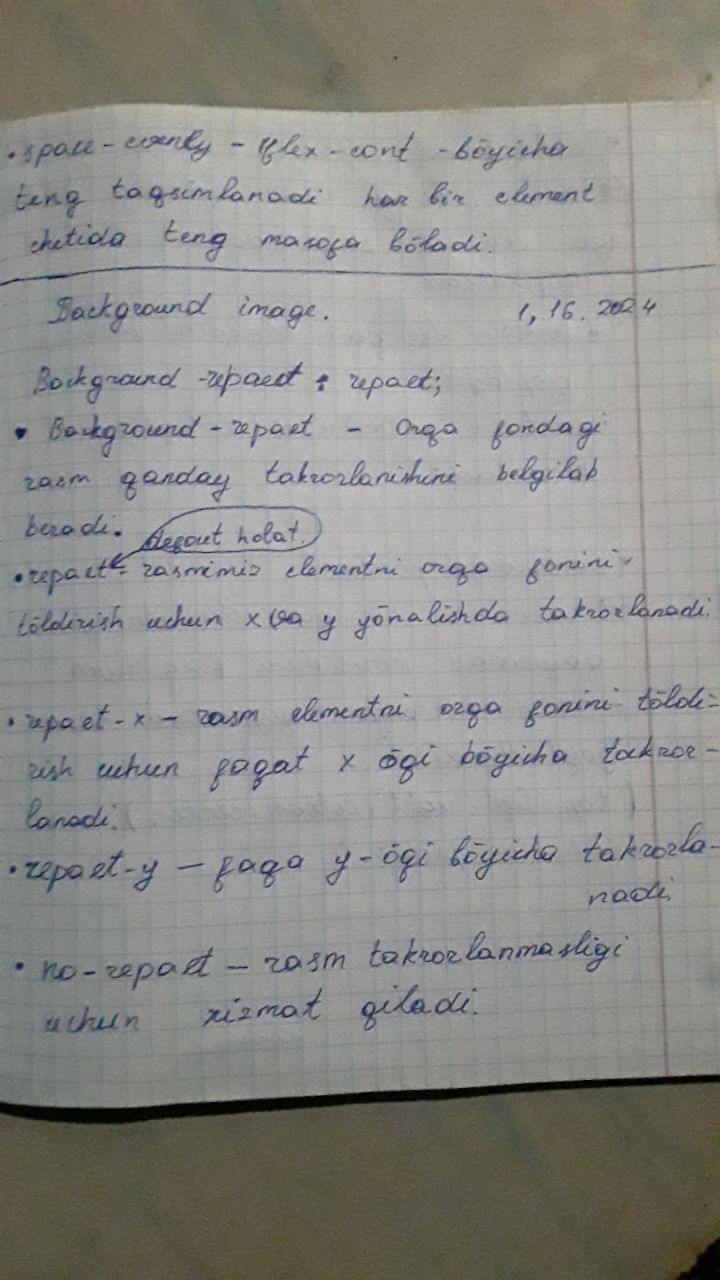 • space-evenly - flex-cont - bo̅yicha
teng taqsimlanadi har bir element
chetida teng masofa bo̅ladi.
Background image. 1, 16. 2024
Background -repaect : repaet;
• Background - repaet - Orqa fondagi
rasm qanday takrorlanishini belgilab
beradi.
defout holat.
• repaet - rasmimiz elementni orqa fonini
to̅ldirish uchun x va y yo̅nalishda takrorlanadi.
• repaet-x - rasm elementni orqa fonini to̅ldi=
rish uchun faqat x o̅qi bo̅yicha takror-
lanadi.
• repaet-y - faqa y-o̅qi bo̅yicha takrorla-
nadi.
• no-repaet - rasm takrorlanmasligi
uchun xizmat qiladi.